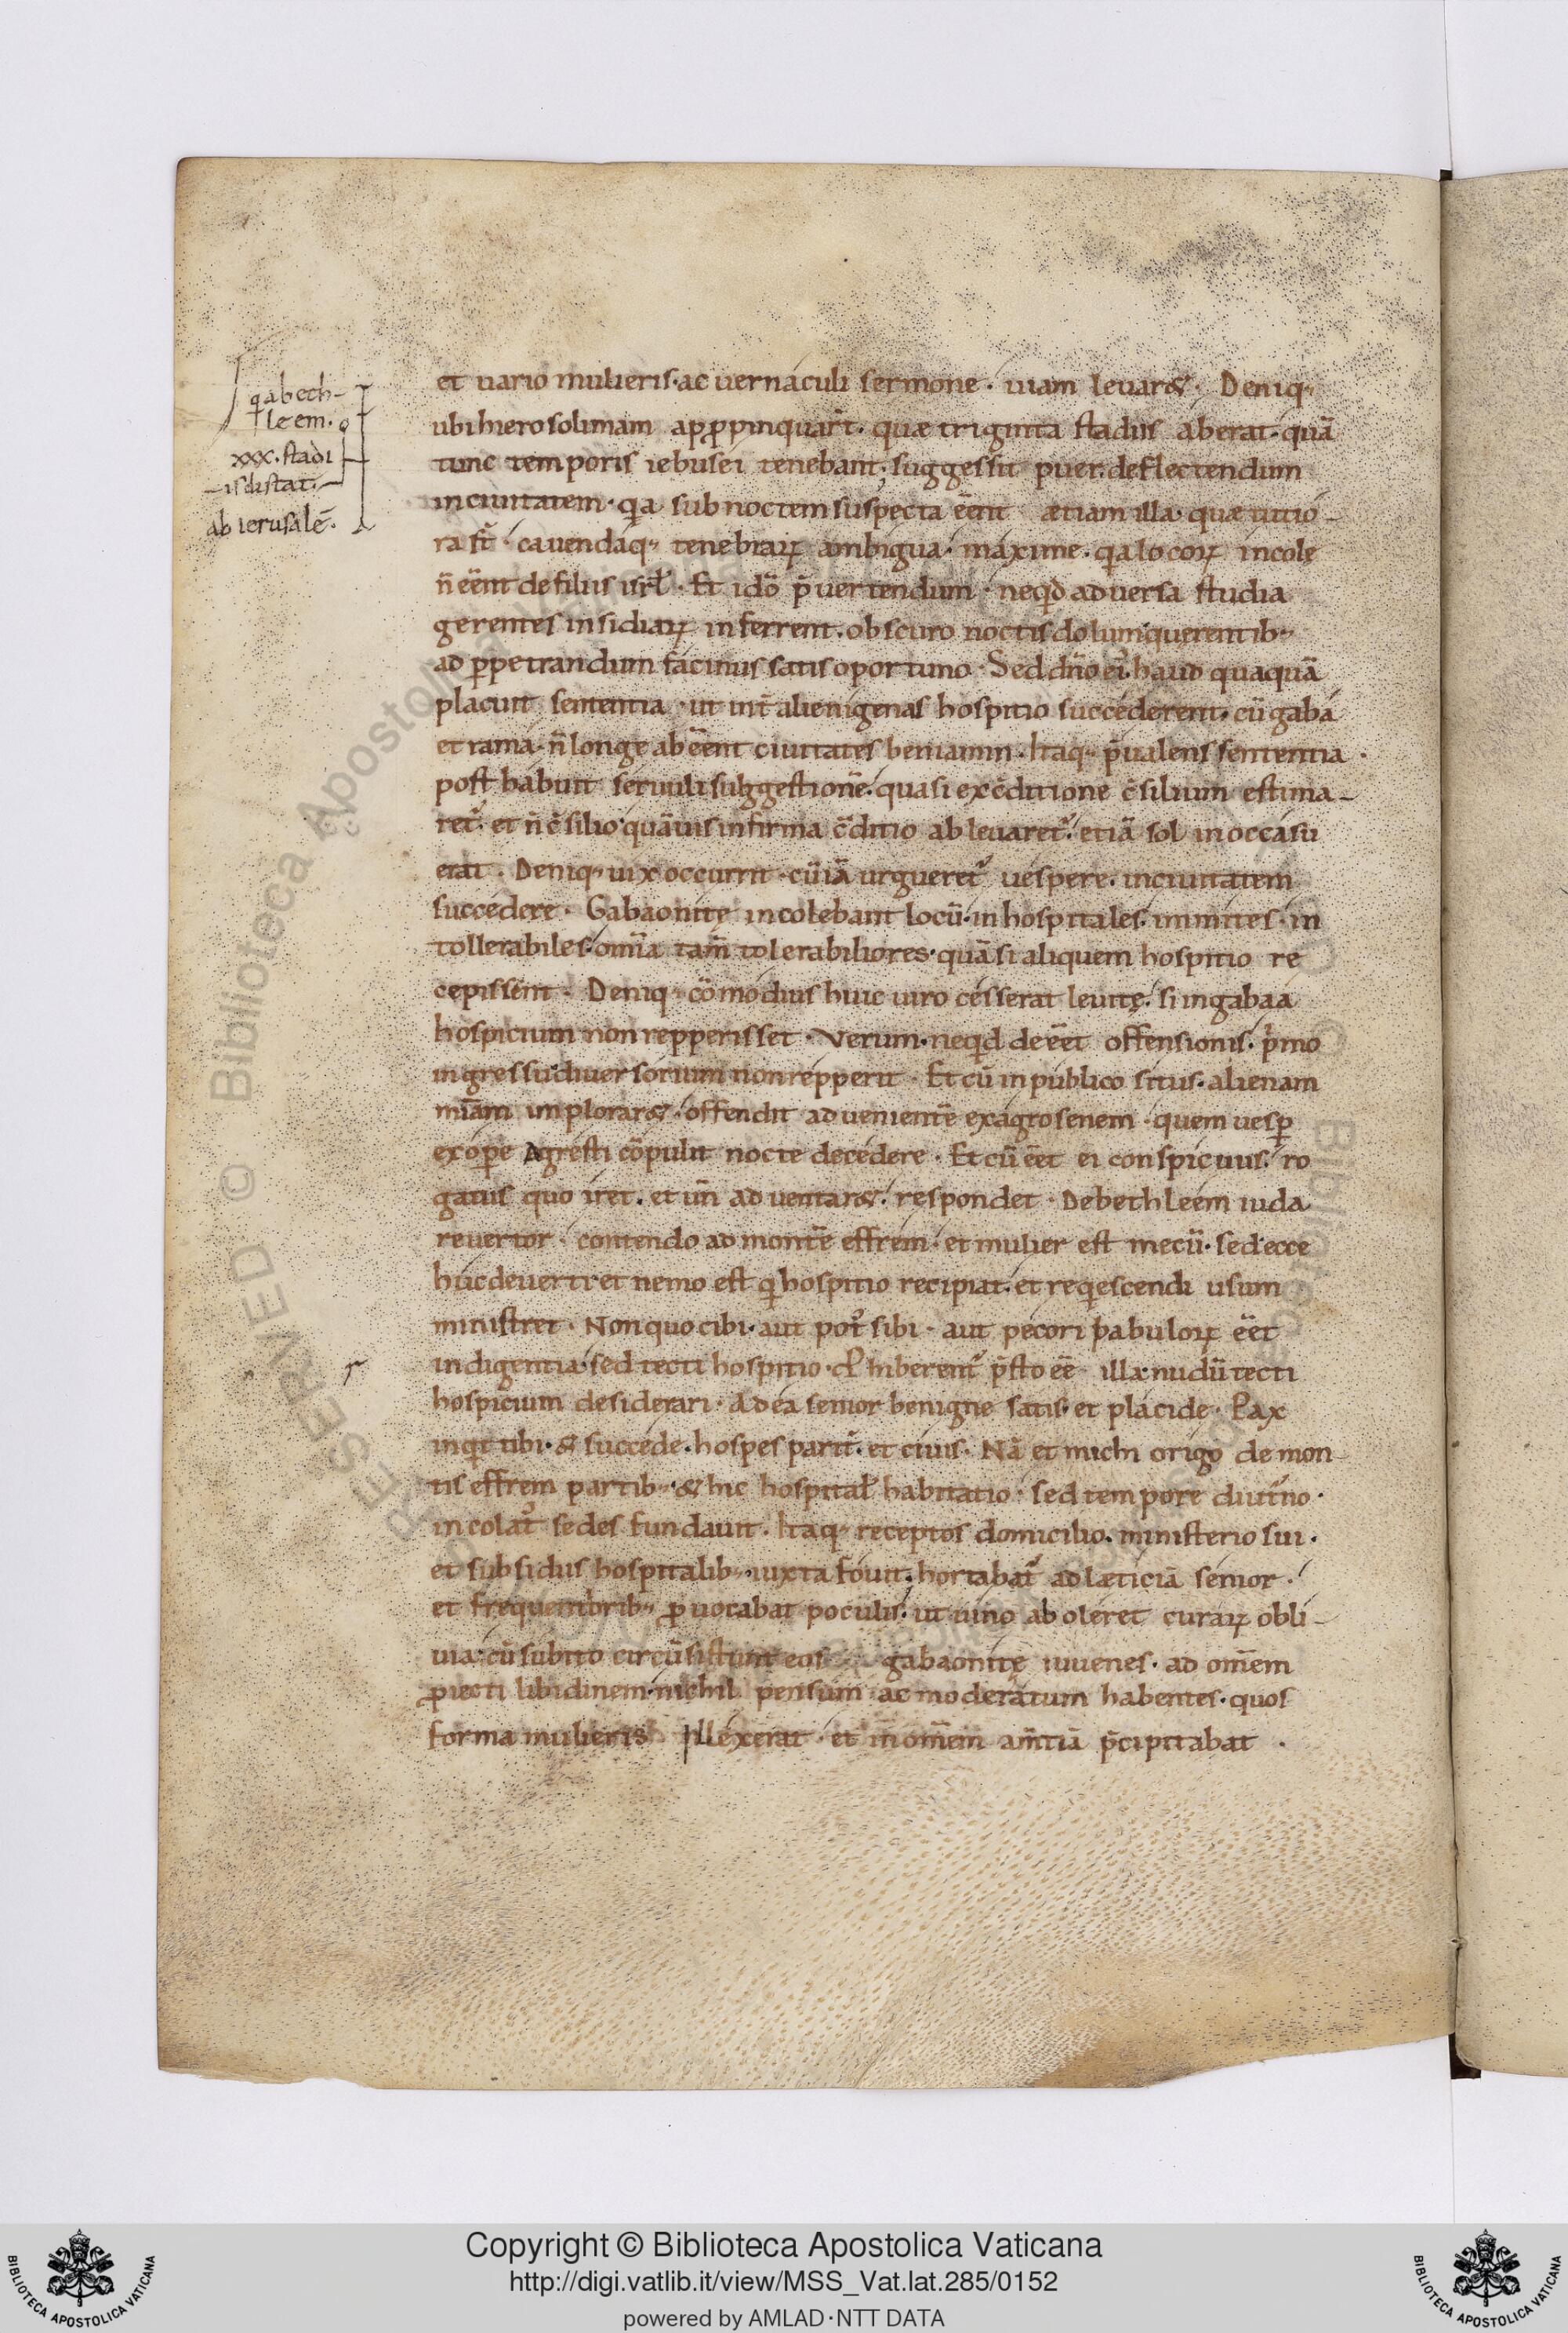 et uario mulieris· ac uernaculi sermone· uiam leuar&· Deniq;
ubi hierosolimam appropinquar̄t· quæ triginta stadiis aberat· quā
tunc temporis iebusei tenebant· suggessit puer deflectendum
in ciuitatem· qa sub noctem suspecta eēnt ætiam illa· quæ tutio-
ra st̄· cauendaq; tenebrarꝝ ambigua· maxime· qa locorꝝ incolę
n̄ eēnt de filiis isrl̄· Et idō p̄uertendum· neqd aduersa studia
gerentes insidiarꝝ inferrent· obscuro noctis dolum querentib;
ad ꝑpetrandum facinus satis oportuno· Sed dn̄o ei haud quaquā
placuit sententia· ut int̄ alienigenas hospitio succederent· cū gaba
et rama· n̄ longe abeēnt ciuitates beniamin· Itaq; p̄ualens sententia·
post habuit seruuili suggestionē· quasi ex c̄ditione c̄silium estima-
ret̄· et n̄ c̄silio quāuis infirma c̄ditio ableuaret̄· etiā sol in occasu
erat· Deniq; uix occurrit· cū iā urgueret̄ uespere· in ciuitatem
succedere· Gabaonitę incolebant locū· inhospitales· inmites· in
tollerabiles· om̄ia tam̄ tolerabiliores· quā si aliquem hospitio re
cepissent· Deniq; cōmodius huic uiro cesserat leuitę· si in gabaa
hospicium non repperisset· Verum· neqd deeēt offensionis· p̄mo
ingressu diuersorium non repperit· Et cū in publico situs· alienam
mīam implorar&· offendit aduenientē ex agro senem· quem uesꝑ
ex oꝑe Agresti cōpulit nocte decedere· Et cū eēt ei conspicuus· ro
gatus quo iret· et un̄ aduentar&· respondet· De bethleem iuda
reuertor· contendo ad montē effrem· et mulier est mecū· sed ecce
huc deuerti et nemo est q hospitio recipiat· et reqescendi usum
ministret· Non quo cibi· aut pot̄ sibi· aut pecori pabulorꝝ eēt
indigentia· sed tecti hospitio· ꝓhiberent̄ p̄sto eē illa· nudū tecti
hospicium desiderari· Ad ea senior benigne satis et placide· Pax
inqt tibi· & succede· hospes parit̄· et ciuis· Nā et michi origo de mon-
tis effrem partib;· & hic hospital̄ habitatio· sed tempore diut̄no·
incolat̄ sedes fundauit· Itaq; receptos domicilio· ministerio sui·
et subsidiis hospitalib; iuxta fouit· hortabat̄ ad læticiā senior·
et frequentiorib; ꝓuocabat poculis· ut uino aboleret curarꝝ obli-
uia· cū subito circūsistunt eos gabaonitę iuuenes· ad om̄em
ꝓiecti libidinem· nichil pensum ac moderatum habentes· quos
forma mulieris Illexerat· et in om̄em am̄tiā p̄cipitabat·
q a bech-
leem·
xxx· stadi
-is distat·-
ab ierusalē·
r
Copyright © Biblioteca Apostolica Vaticana
http://digi.vatlib.it/view/MSS_Vat.lat.285/0152
powered by AMLAD·NTT DATA
BIBLIOTECA APOSTOLICA VATICANA
BIBLIOTECA APOSTOLICA VATICANA